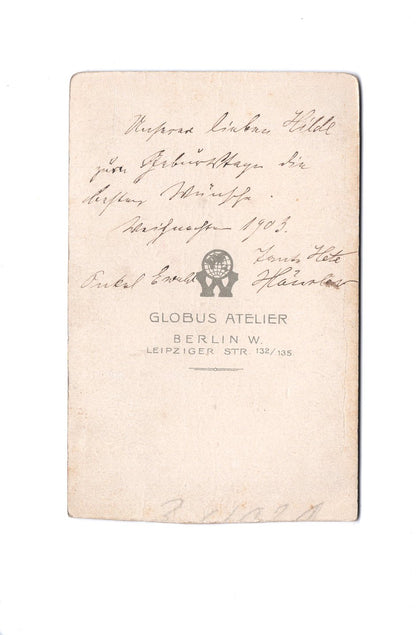 Unserer lieben Hilde
zum Geburtstage die
besten Wünsche.
Weihnachten 1903.
Tante Hete
Onkel Ewald
GLOBUS ATELIER
BERLIN W.
LEIPZIGER STR. 132/135.